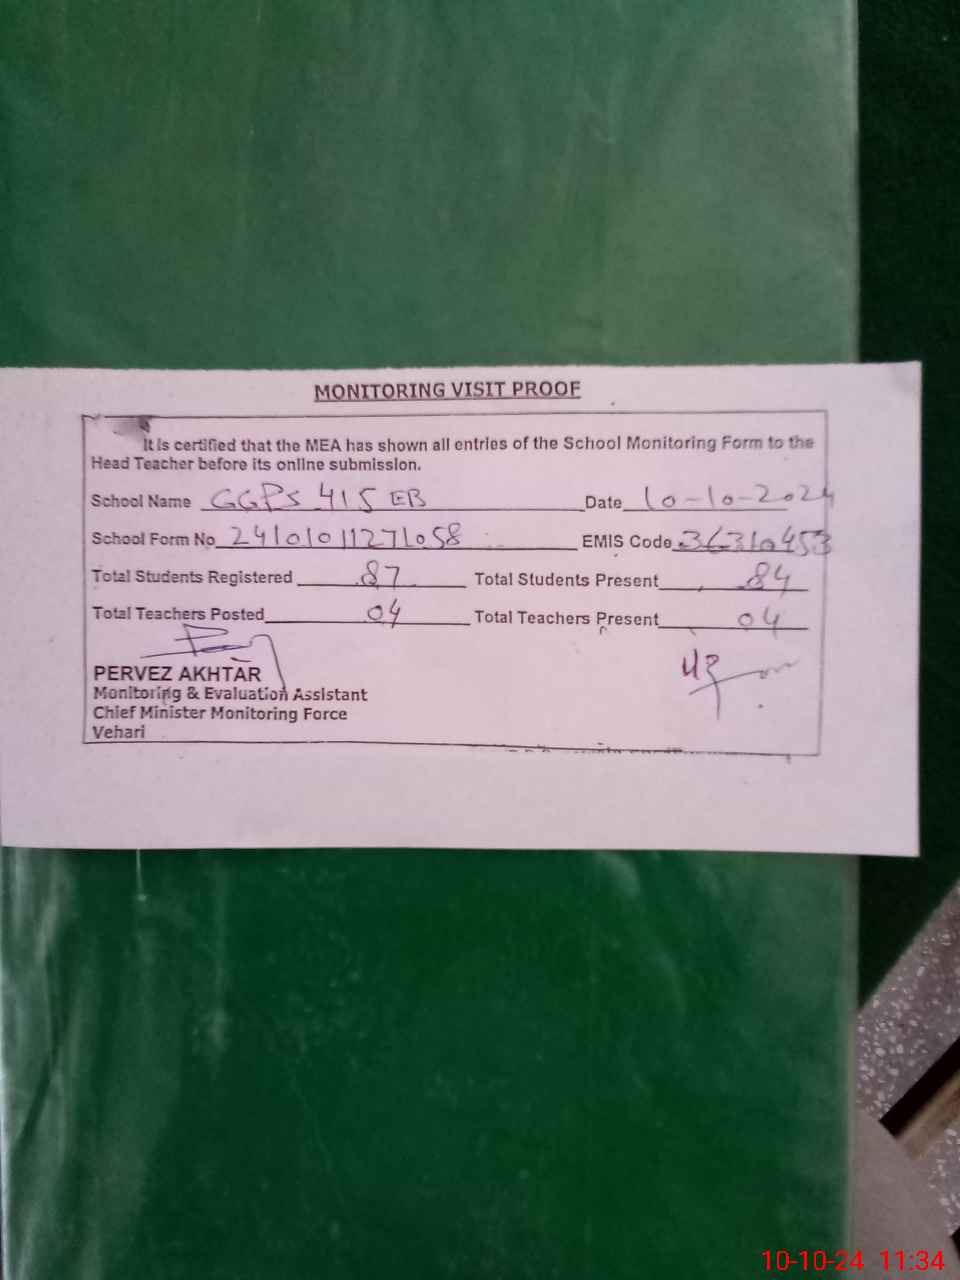 MONITORING VISIT PROOF
It is certified that the MEA has shown all entries of the School Monitoring Form to the
Head Teacher before its online submission.
School Name GGPS 415 EB Date 10-10-2024
School Form No 24101011271058 EMIS Code 36310453
Total Students Registered 87 Total Students Present 84
Total Teachers Posted 04 Total Teachers Present 04
PERVEZ AKHTAR
Monitoring & Evaluation Assistant
Chief Minister Monitoring Force
Vehari
10-10-24 11:34